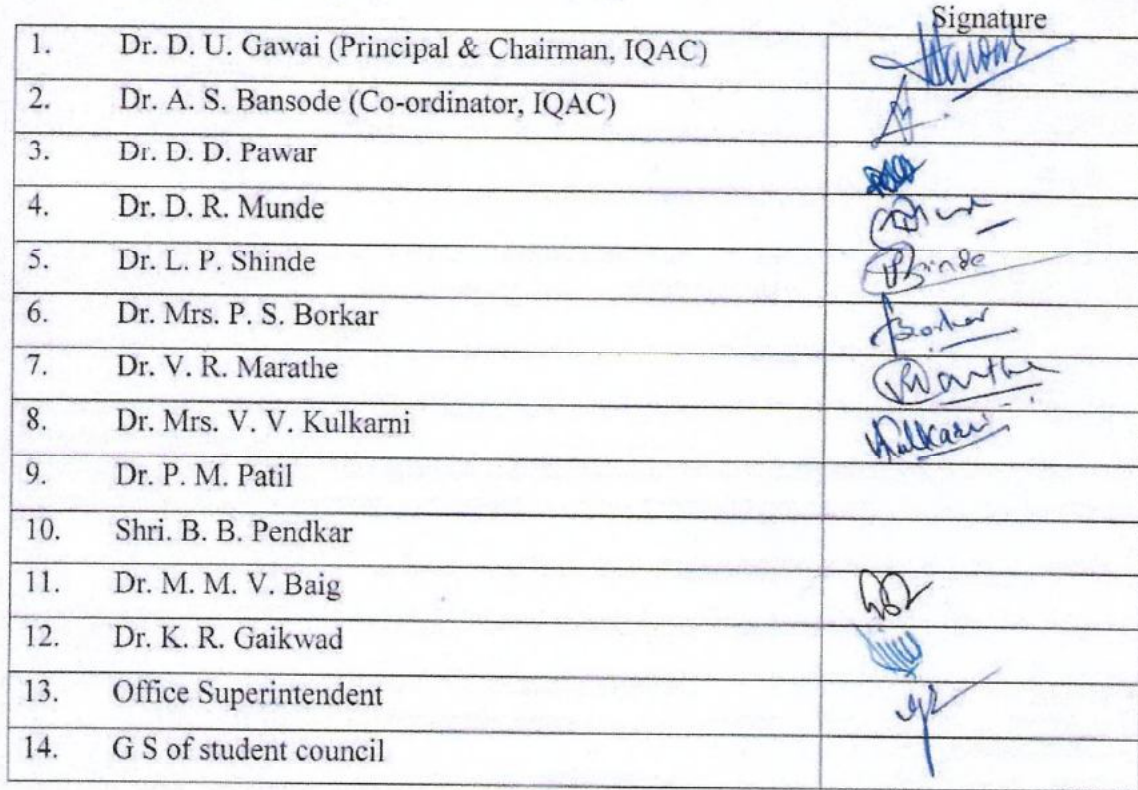 Signature
1. Dr. D. U. Gawai (Principal & Chairman, IQAC)
2. Dr. A. S. Bansode (Co-ordinator, IQAC)
3. Dr. D. D. Pawar
4. Dr. D. R. Munde
5. Dr. L. P. Shinde
6. Dr. Mrs. P. S. Borkar Borkar
7. Dr. V. R. Marathe
8. Dr. Mrs. V. V. Kulkarni Kulkarni
9. Dr. P. M. Patil
10. Shri. B. B. Pendkar
11. Dr. M. M. V. Baig
12. Dr. K. R. Gaikwad
13. Office Superintendent
14. G S of student council